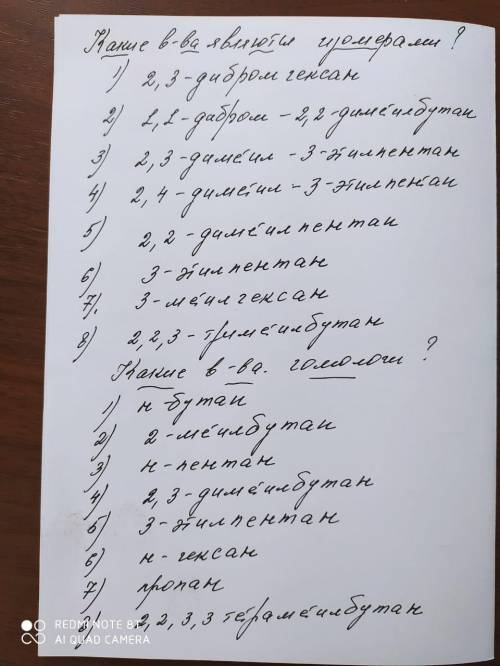 Какие в-ва являются изомерами?
1) 2,3-дибромгексан
2) 1,1-дибром-2,2-диметилбутан
3) 2,3-диметил-3-этилпентан
4) 2,4-диметил-3-этилпентан
5) 2,2-диметилпентан
6) 3-этилпентан
7) 3-метилгексан
8) 2,2,3-триметилбутан
Какие в-ва. гомологи?
1) н-бутан
2) 2-метилбутан
3) н-пентан
4) 2,3-диметилбутан
5) 3-этилпентан
6) н-гексан
7) пропан
2,2,3,3 тетраметилбутан
REDMI NOTE 8T
AI QUAD CAMERA